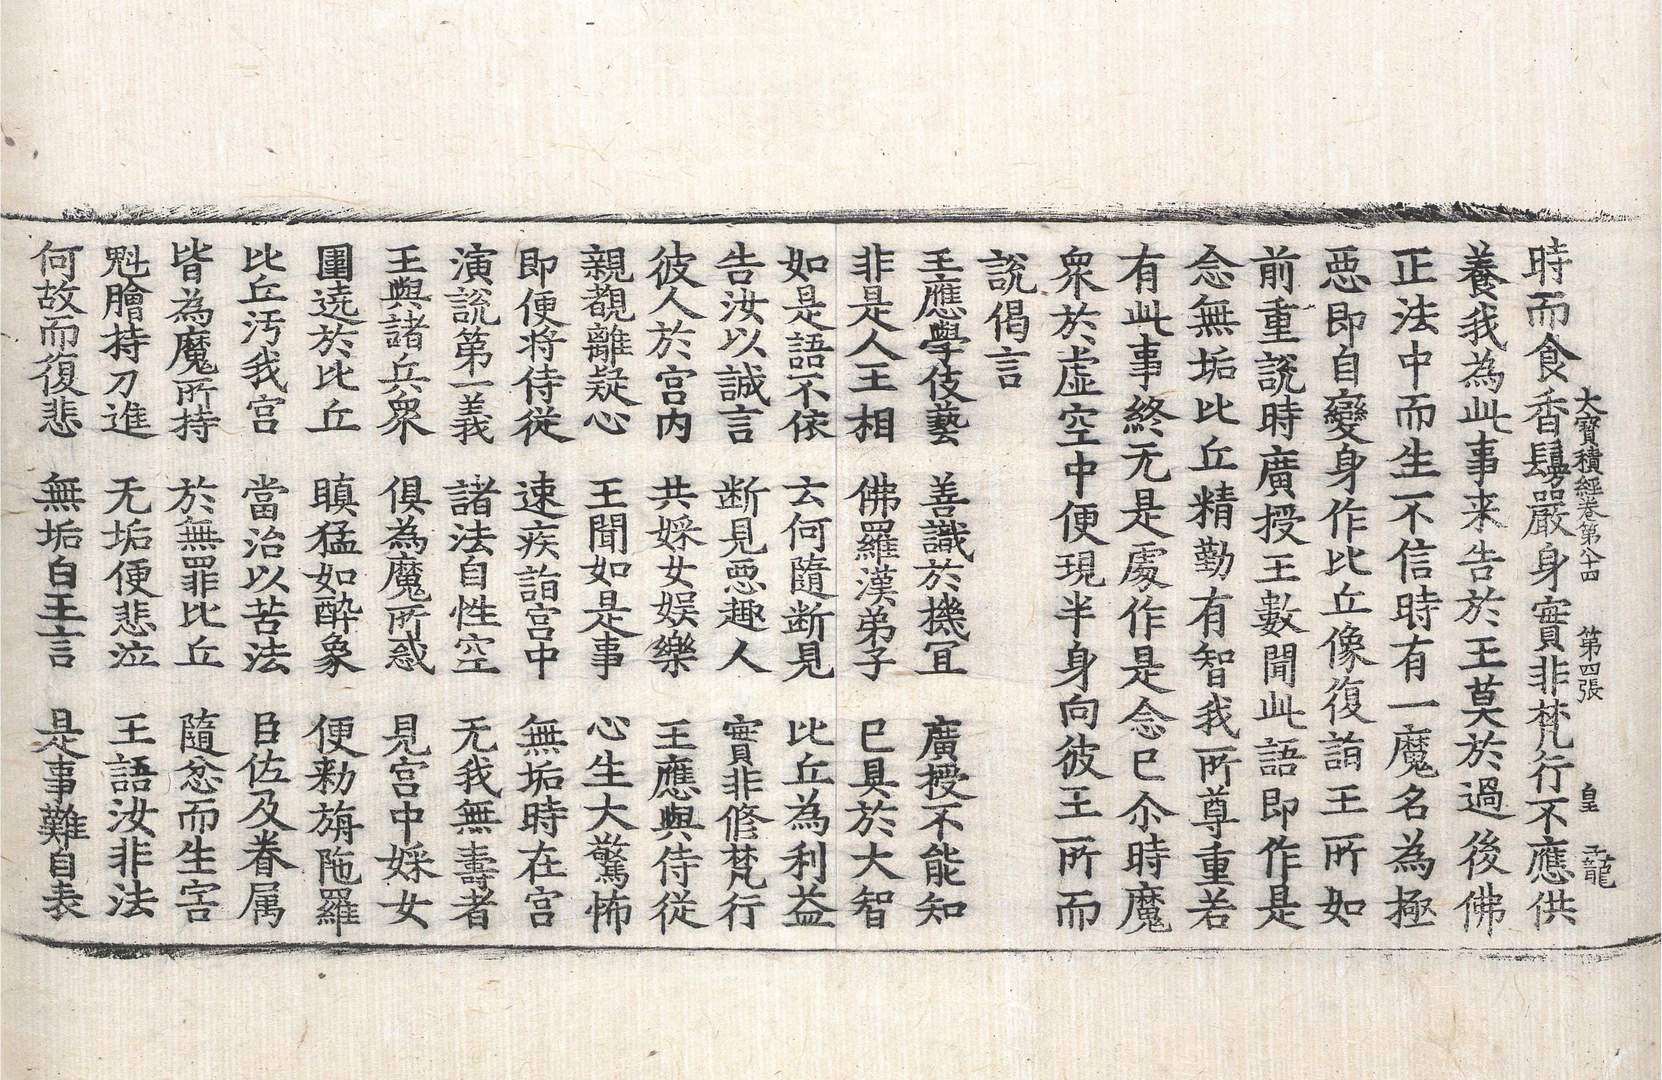 大寶積經卷第八十四 第四張 皇 龍
時而食香鬘嚴身實非梵行不應供
養我為此事来告於王莫於過後佛
正法中而生不信時有一魔名為極
惡即自變身作比丘像復詣王所如
前重說時廣授王數聞此語即作是
念無垢比丘精勤有智我所尊重若
有此事終无是處作是念已尒時魔
衆於虛空中便現半身向彼王所而
說偈言
王應學伎藝 善識於機冝 廣授不能知
非是人王相 佛羅漢弟子 已具於大智
如是語不依 云何隨断見 比丘為利益
告汝以誠言 断見惡趣人 實非修梵行
彼人於宮内 共婇女娱樂 王應與侍従
親覩離疑心 王聞如是事 心生大驚怖
即便将侍従 速疾詣宮中 無垢時在宮
演說第一義 諸法自性空 无我無壽者
王與諸兵衆 俱為魔所惑 見宮中婇女
圍遶於比丘 瞋猛如醉象 便勑旃陁羅
比丘汚我宮 當治以苦法 臣佐及眷属
皆為魔所持 於無罪比丘 隨忿而生害
魁膾持刀進 无垢便悲泣 王語汝非法
何故而復悲 無垢白王言 是事難自表